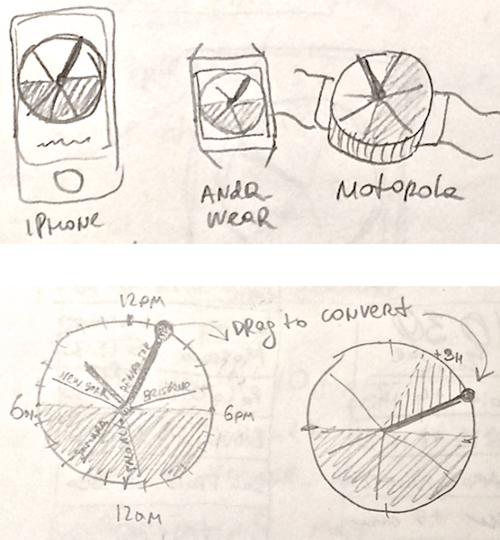 IPHONE
ANDR
WEAR
MOTOROLA
12PM
DRAG to CONVERT
+3H
NEW YORK
BRISBANE
6AM
6PM
12AM